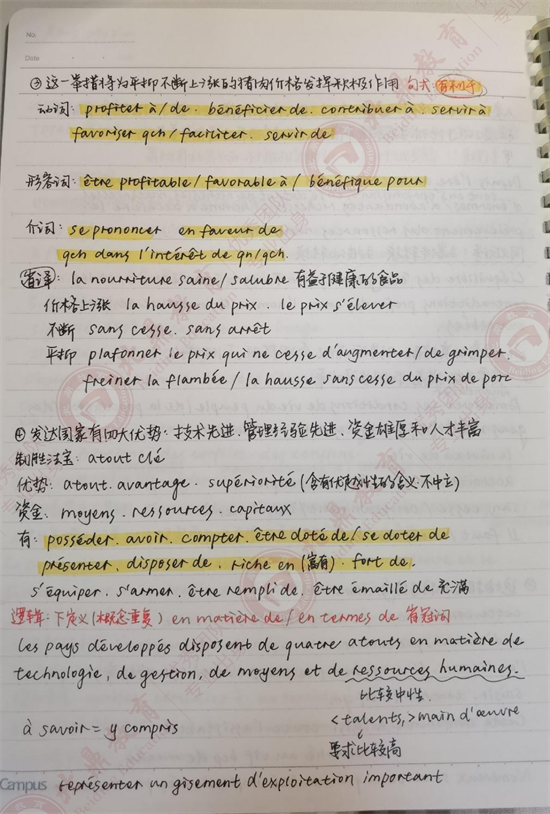 No.
Date
③这一举措将为平抑不断上涨的猪肉价格发挥积极作用 句式:有利于
动词: profiter à/de. bénéficier de. contribuer à. servir à
favoriser qch/faciliter. servir de
形容词: être profitable/favorable à/bénéfique pour
介词: se prononcer en faveur de
qch dans l'intérêt de qn/qch.
la nourriture saine/salubre 有益于健康的食品
价格上涨 la hausse du prix. le prix s'élever
不断 sans cesse. sans arrêt
平抑 plafonner le prix qui ne cesse d'augmenter/de grimper.
freiner la flambée/la hausse sans cesse du prix de porc
④发达国家有四大优势:技术先进、管理经验先进、资金雄厚和人才丰富
制胜法宝: atout clé
优势: atout. avantage. supériorité (含有优越性的含义.不中立)
资金: moyens. ressources. capitaux
有: posséder. avoir. compter. être doté de/se doter de
présenter. disposer de. riche en (富有). fort de.
s'équiper. s'armer. être rempli de. être émaillé de 充满
逻辑: 下定义(概念重复) en matière de/en termes de 省冠词
Les pays développés disposent de quatre atouts en matière de
technologie, de gestion, de moyens et de ressources humaines.
比较中性.
à savoir = y compris
<talents,>main d'œuvre
要求比较高
Campus
représenter un gisement d'exploitation important